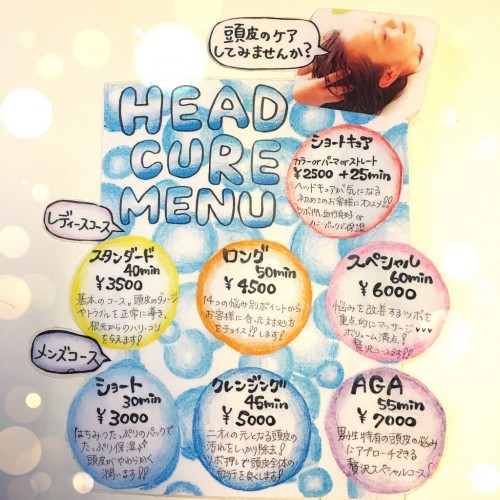 頭皮のケア
してみませんか?
HEAD
CURE
MENU
ショートキュア
カラーorパーマorストレート
¥2500 +25min
ヘッドキュアが気になる
初めてのお客様にオススメ!!
ツボ押し血行良好 or
ハニーパックで保湿
レディースコース
スタンダード
40min
¥3500
基本のコース。頭皮のダメージ
やトラブルを正常に導き、
根元からのハリ・コシ
を与えます!
ロング
50min
¥4500
4つの悩み別ポイントから
お客様に合った対処方
をチョイス!!します!
スペシャル
60min
¥6000
悩みを改善するツボを
重点的にマッサージ♥♥♥
ボリューム満点!
贅沢コースです!
メンズコース
ショート
30min
¥3000
はちみつたっぷりのパックで
たっぷり保湿♪
頭皮がやわらかく
潤います!!
クレンジング
45min
¥5000
ニオイの元となる頭皮の
汚れをしっかり除去!
ツボ押しで頭皮全体の
血行を良くします!
AGA
55min
¥7000
男性特有の頭皮の悩み
にアプローチできる
贅沢スペシャルコース!